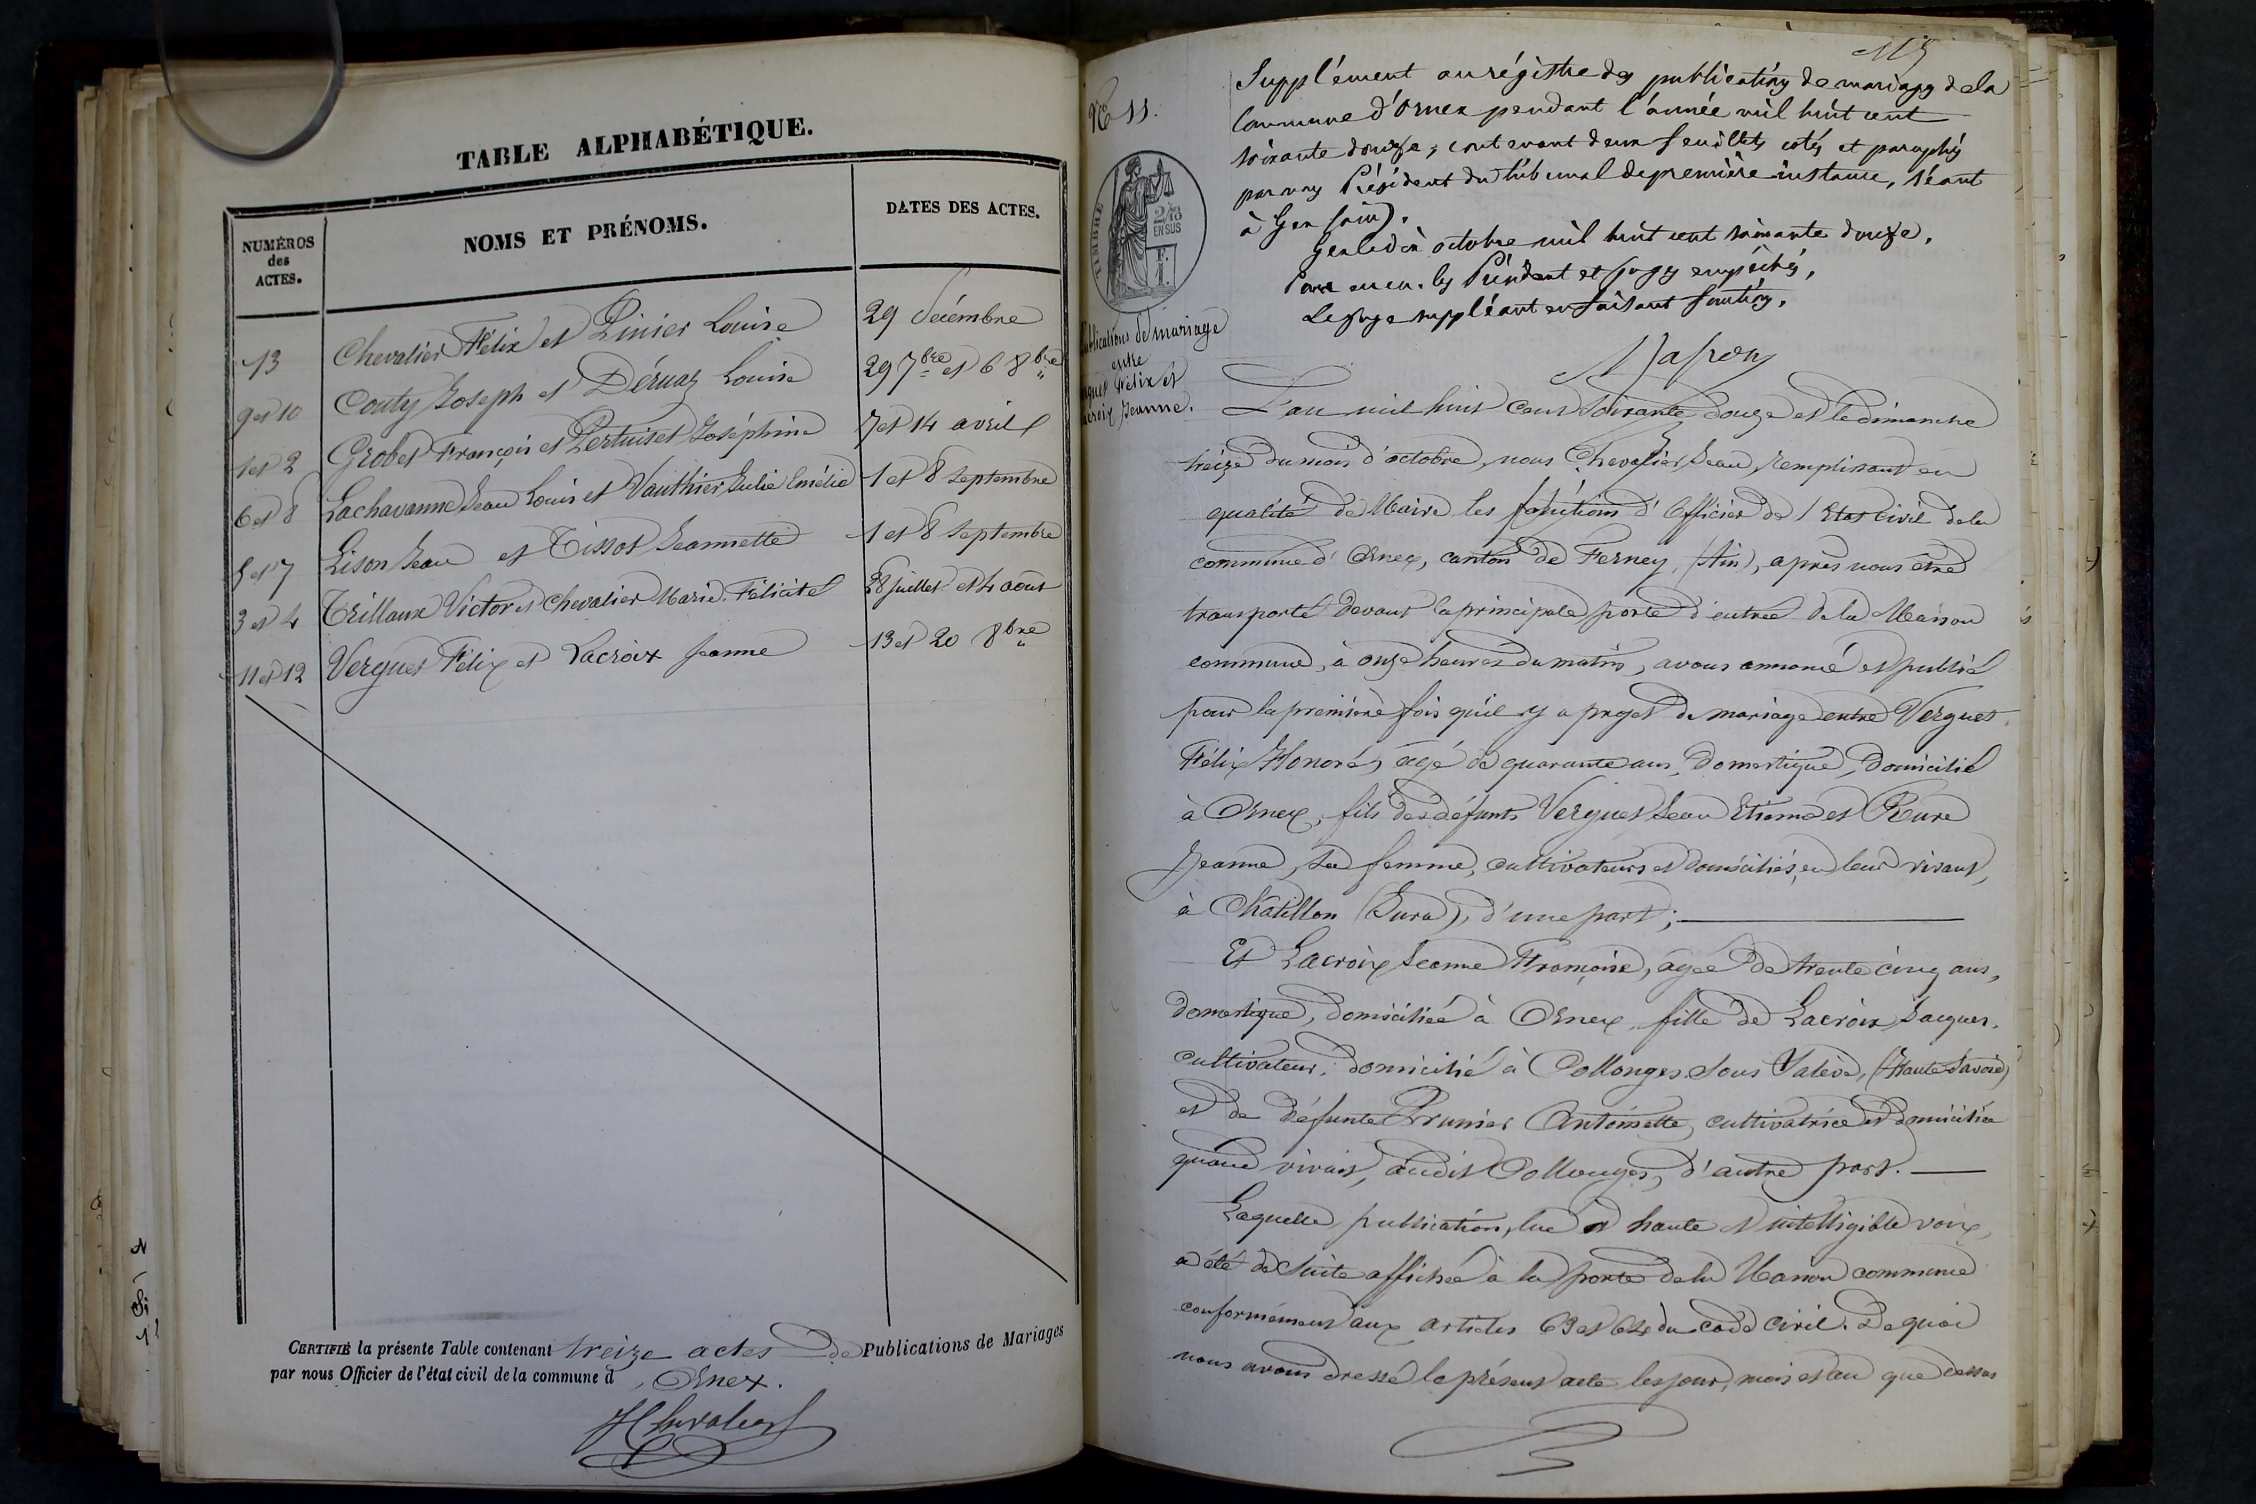 TABLE ALPHABÉTIQUE.
NUMÉROS des ACTES.
NOMS ET PRÉNOMS.
DATES DES ACTES.
13 Chevalier Félix et Linier Louise 29 Décembre
9 et 10 Couty Joseph et Déruaz Louise 29 7bre et 6 8bre
1 et 2 Grobet François et Pertuiset Joséphine 7 et 14 avril
6 et 8 Lachavanne Jean Louis et Vauthier Julie Emélie 1 et 8 Septembre
5 et 7 Lison Jean et Tissot Jeannette 1 et 8 Septembre
3 et 4 Trillaux Victor et Chevalier Marie Félicité 28 juillet et 4 aout
11 et 12 Vergues Félix et Lacroix Jeanne 13 et 20 8bre
CERTIFIÉ la présente Table contenant treize actes de Publications de Mariages
par nous Officier de l'état civil de la commune d'Ornex.
JChevalier
115
No 11.
Supplément au régistre des publications de mariages de la
Commune d'Ornex pendant l'année mil huit cent
soixante douze, contenant deux feuillets cotés et paraphés
par nous Président du tribunal de première instance, séant
à Gex (ain).
Gex le dix octobre mil huit cent soixante douze.
Pour MM. les Président et juges empêchés,
Le juge suppléant en faisant fonctions,
TIMBRE
2/10
EN SUS
F.
1.
Publications de mariage
entre
Vergues Félix et
Lacroix Jeanne.
L'an mil huit cent soixante douze et le dimanche
treize du mois d'octobre, nous Chevalier Jean remplissant en
qualité de Maire les fonctions d'Officier de l'Etat Civil de la
commune d'Ornex, canton de Ferney, (Ain), après nous être
transporté devant la principale porte d'entrée de la Maison
commune, à onze heures du matin, avons annoncé et publié
pour la première fois qu'il y a projet de mariage entre Vergues
Félix Honoré, âgé de quarante ans, domestique, domicilié
à Ornex, fils des défunts Vergues Jean Etienne et Reure
Jeanne, sa femme, cultivateurs et domiciliés, en leur vivant,
à Châtillon (Jura), d'une part;
Et Lacroix Jeanne Françoise, âgée de trente cinq ans,
domestique, domiciliée à Ornex, fille de Lacroix Jacques,
cultivateur, domicilié à Collonges Sous Salève, (Haute Savoie)
et de défunte Prunier Antoinette, cultivatrice et domiciliée
quand vivait, audit Collonges, d'autre part.
Laquelle publication, lue à haute et intelligible voix,
a été de suite affichée à la porte de la Maison commune
conformément aux articles 63 et 64 du code civil. De quoi
nous avons dressé le présent acte les jour, mois et an que dessus